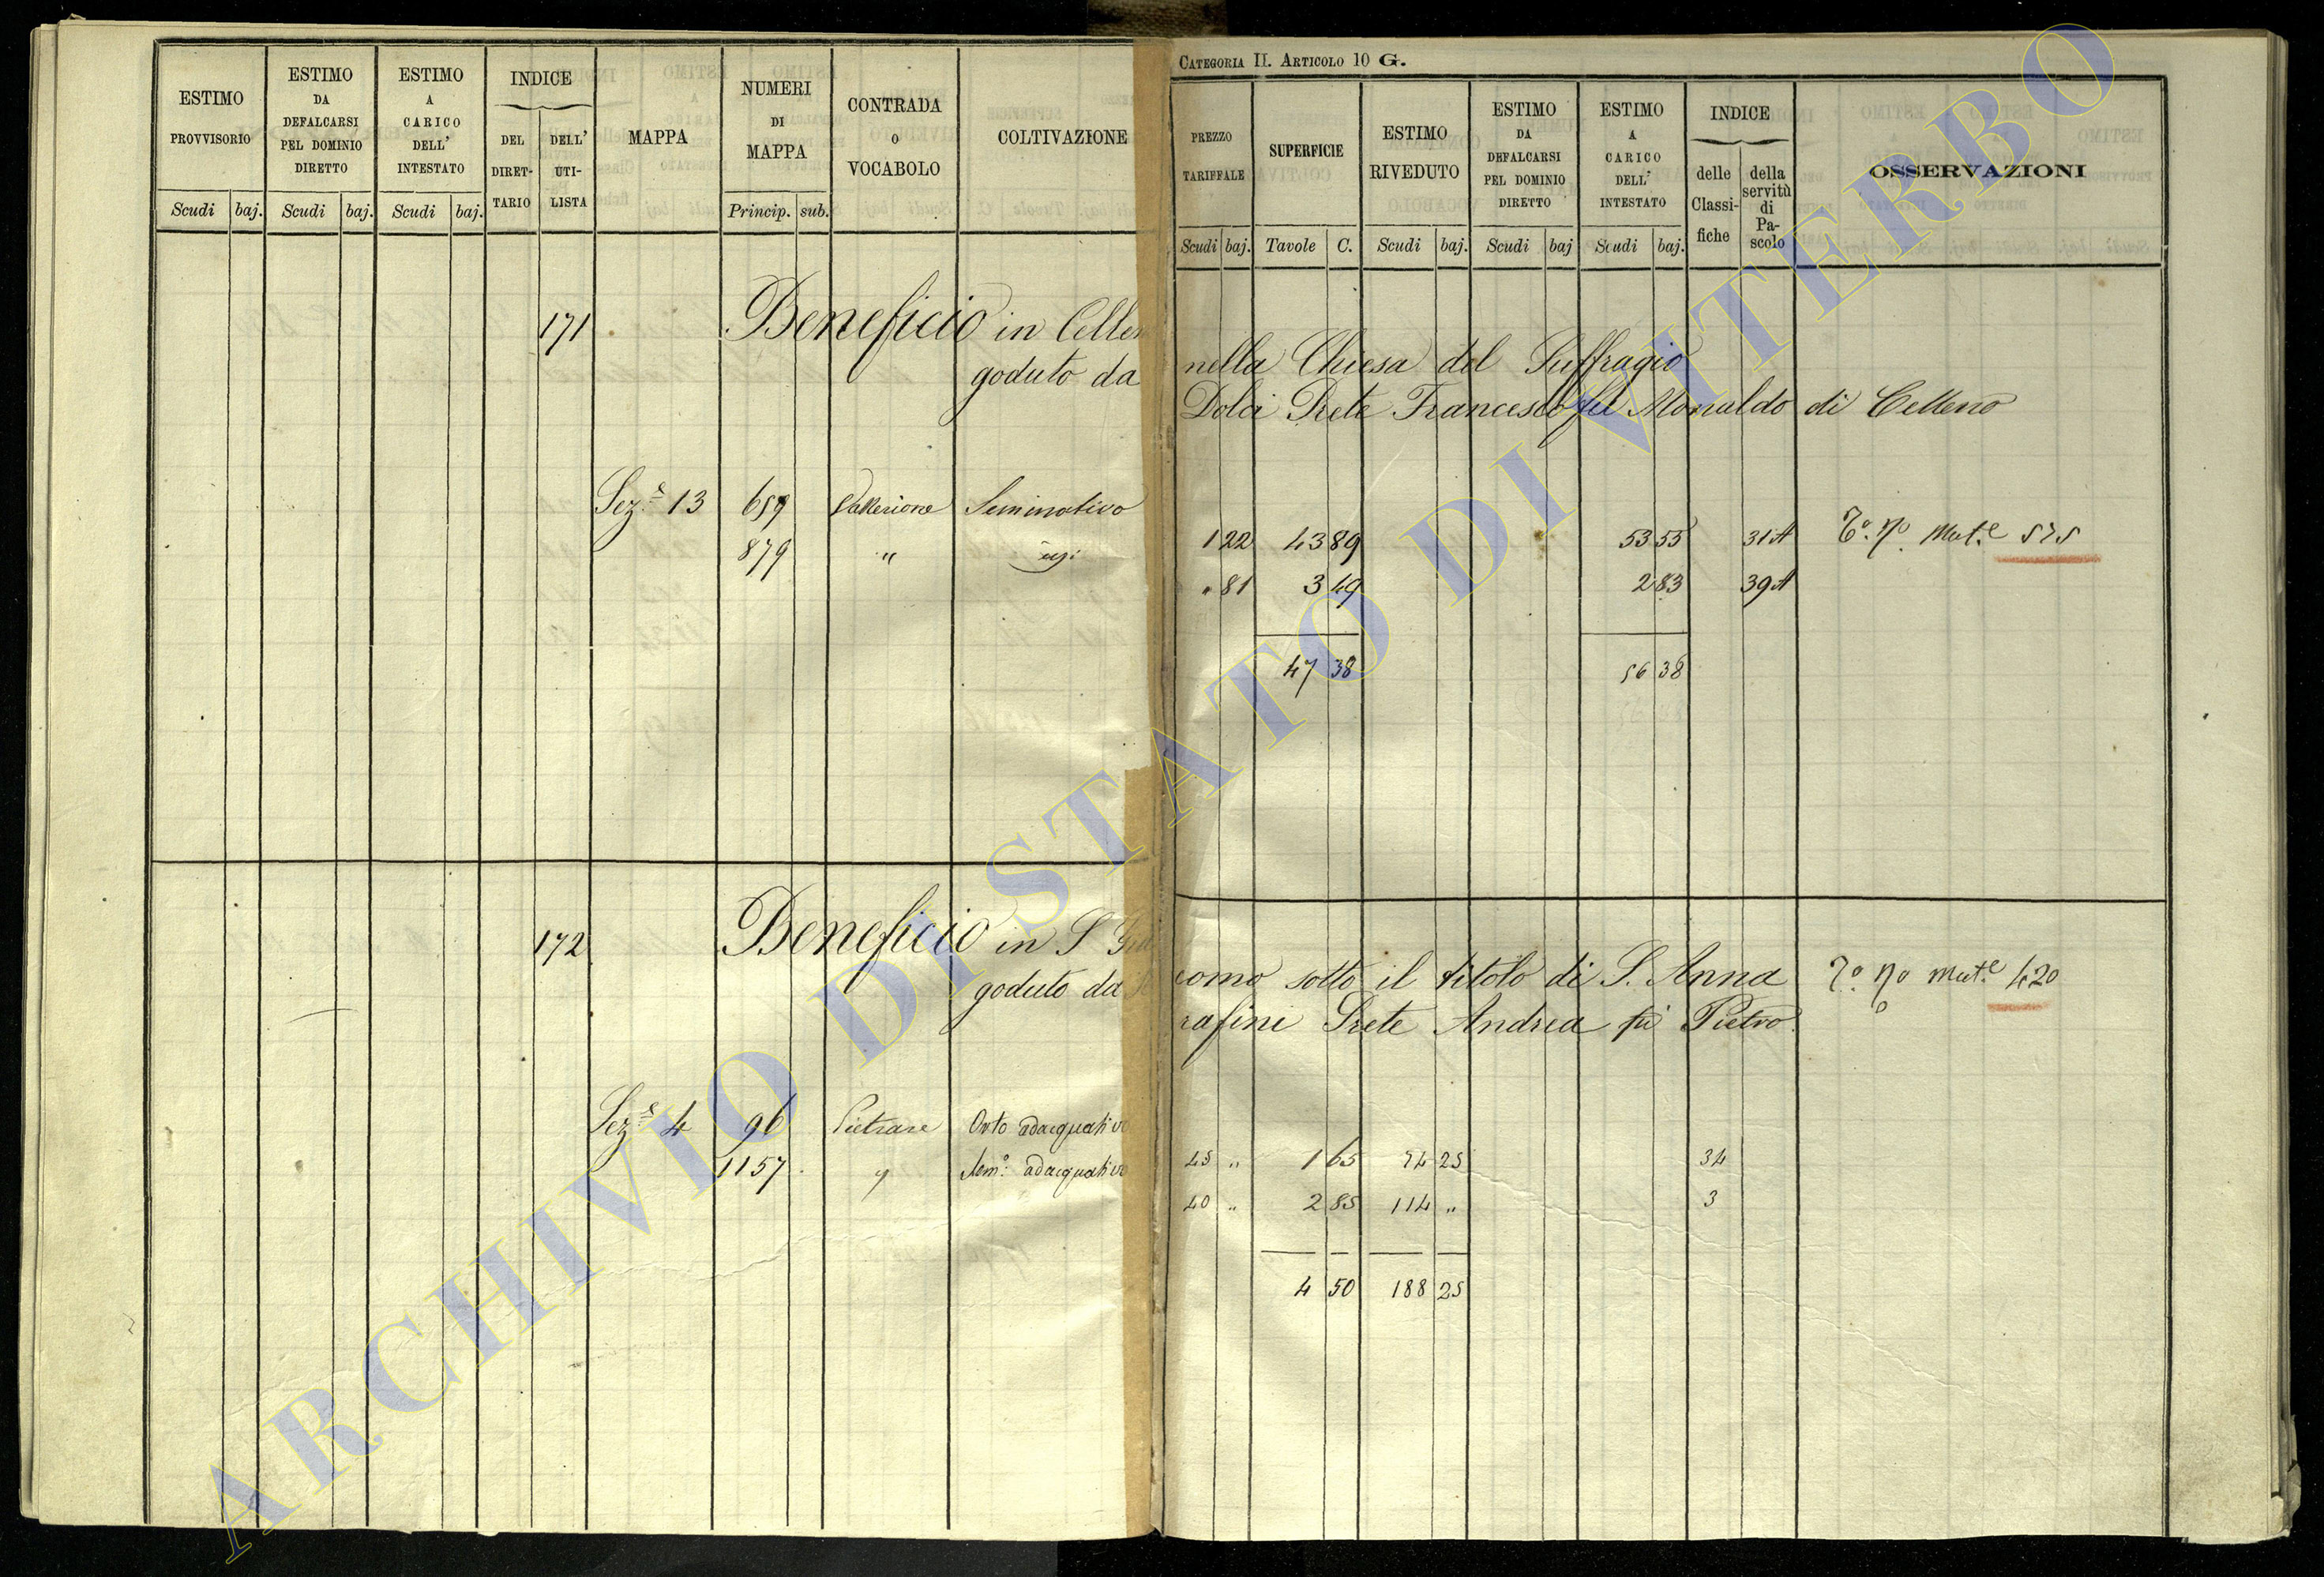 CATEGORIA II. ARTICOLO 10 G.
ESTIMO PROVVISORIO
Scudi baj.
ESTIMO DA DEFALCARSI PEL DOMINIO DIRETTO
Scudi baj.
ESTIMO A CARICO DELL' INTESTATO
Scudi baj.
INDICE
DEL DIRET-TARIO
DELL' UTI-LISTA
MAPPA
NUMERI DI MAPPA
Princip. sub.
CONTRADA O VOCABOLO
COLTIVAZIONE
PREZZO TARIFFALE
Scudi baj.
SUPERFICIE
Tavole C.
ESTIMO RIVEDUTO
Scudi baj.
ESTIMO DA DEFALCARSI PEL DOMINIO DIRETTO
Scudi baj
ESTIMO A CARICO DELL' INTESTATO
Scudi baj.
INDICE
delle Classi-fiche
della servitù di Pa-scolo
OSSERVAZIONI
171 Beneficio in Celle
nella Chiesa del Suffragio
goduto da
Dolci Prete Francesco del Monaldo di Celleno
Sez.e 13 659 Seminativo
122 43 89 53 55 31 A Mut.e 525
879 "
" 81 3 49 2 83 39 A
47 38 56 38
172 Beneficio in S Gia
como sotto il titolo di S. Anna Mut.e 420
goduto da Se
rafini Prete Andrea fù Pietro
Sez.e 4 96 Pietrare Orto adacquativo
45 " 1 65 74 25 34
1157 " Sem.o adacquativo
40 " 2 85 114 " 3
4 50 188 25
ARCHIVIO DI STATO DI VITERBO